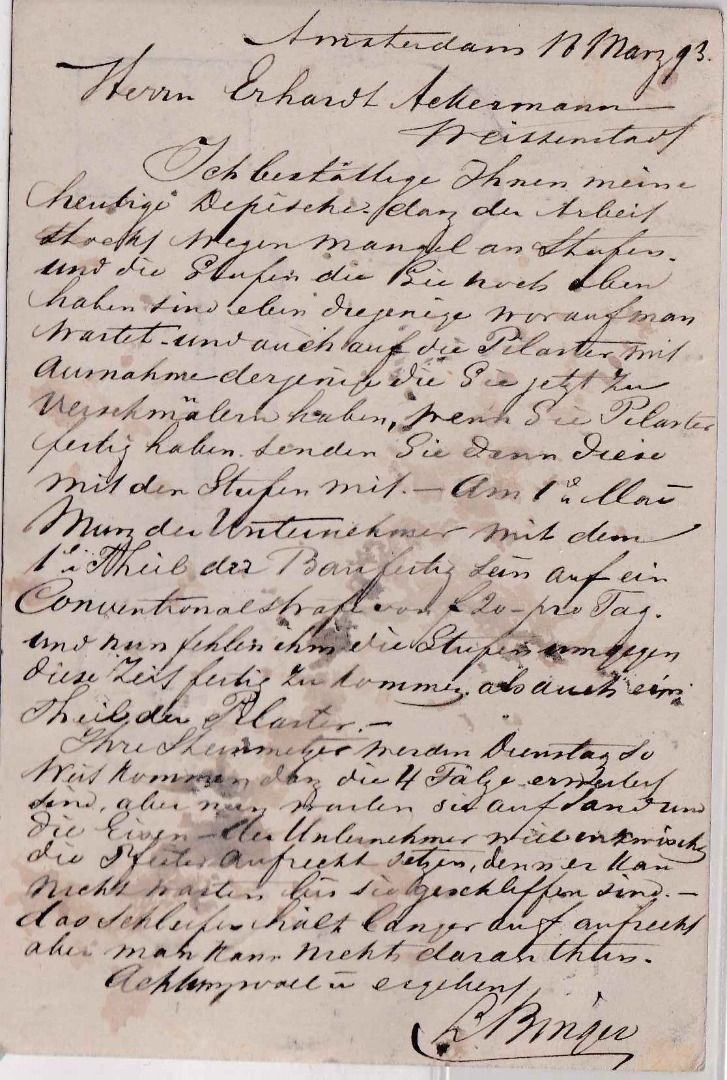 Amsterdam 18 Marz 93.
Herrn Erhardt Ackermann
Weissenstadt
Ich bestättige Ihnen meine
heutige Depesche, daz der Arbeit
stockt wegen Mangel an Stufen.
und die Stufen die Sie noch oben
haben sind eben diejenige worauf man
wartet und auch auf die Pilaster mit
Ausnahme derjenige die Sie jetzt zu
verschmälern haben, wenn Sie Pilaster
fertig haben. senden Sie denn diese
mit den Stufen mit. – Am 1e Mai
Munz der Unternehmer mit dem
1e Theil der Bau fertig sein auf ein
Conventionalstrafe von f 20 – pro Tag.
und nun fehlen ihm die Stufen um gegen
diese Zeit fertig zu kommen, als auch ein
Theil der Pilaster. –
Ihre Steinmetzer werden Dienstag so
weit kommen daz die 4 Fälze erweitert
sind, aber nun warten sie auf Sand und
die Eisen – der Unternehmer will inzwischen
die Pfeiler aufrecht setzen, denn er kan
nicht warten bis sie geschliffen sind. –
das Schleifen hält langer auf aufrecht
aber man kann nichts daran thun.
Achtungsvoll u ergebenst
Binger